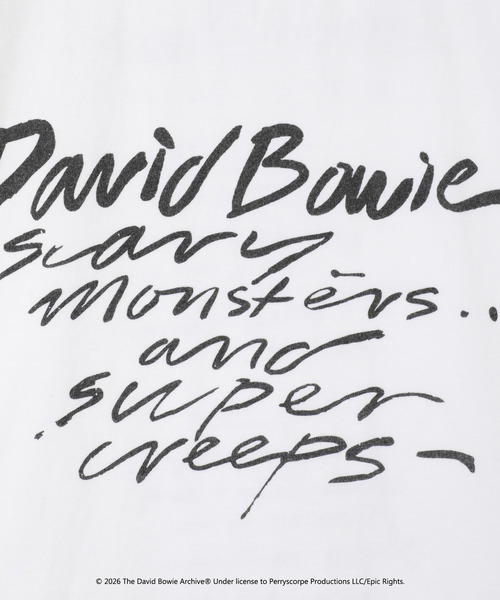 David Bowie
scary
monsters..
and
super
creeps-
© 2026 The David Bowie Archive® Under license to Perryscorpe Productions LLC/Epic Rights.